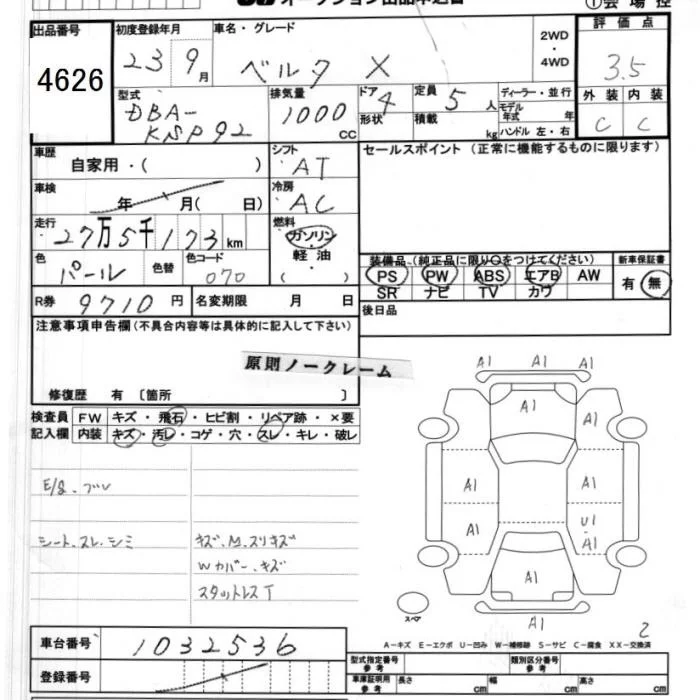 オークション出品申込書 ①会場控
出品番号 初度登録年月 車名・グレード 2WD・4WD 評価点
4626 23 9月 ベルタ X 3.5
型式 排気量 ドア形状 定員 積載 ディーラー・並行 外装 内装
DBA- 1000 CC 4 5人 kg モデル年式 年 C C
KSP92 ハンドル 左・右
車歴 自家用・( ) シフト AT セールスポイント (正常に機能するものに限ります)
車検 年 月( 日) 冷房 AC
走行 27万5千173km 燃料 ガソリン・軽油・( )
色 パール 色替 色コード 070
装備品(純正品に限り○をつけてください) 新車保証書
PS PW ABS エアB AW 有 無
SR ナビ TV カワ
R券 9710円 名変期限 月 日 後日品
注意事項申告欄(不具合内容等は具体的に記入して下さい)
原則ノークレーム
修復歴 有 〔箇所 〕
検査員 FW キズ・飛石・ヒビ割・リペア跡・×要
記入欄 内装 キズ・汚レ・コゲ・穴・スレ・キレ・破レ
E/g.ブレ
シート.スレ.シミ キズ.M.スリキズ
Wカバー.キズ
スタットレスT
A1 A1 A1
A1
A1 A1
A1 A1
A1 U1・A1
A1
スペア A1 2
A-キズ E-エクボ U-凹み W-補修跡 S-サビ C-腐食 XX-交換済
車台番号 1032536 型式指定番号 参考 類別区分番号 参考
登録番号 車庫証明用 参考 長さ cm 幅 cm 高さ cm